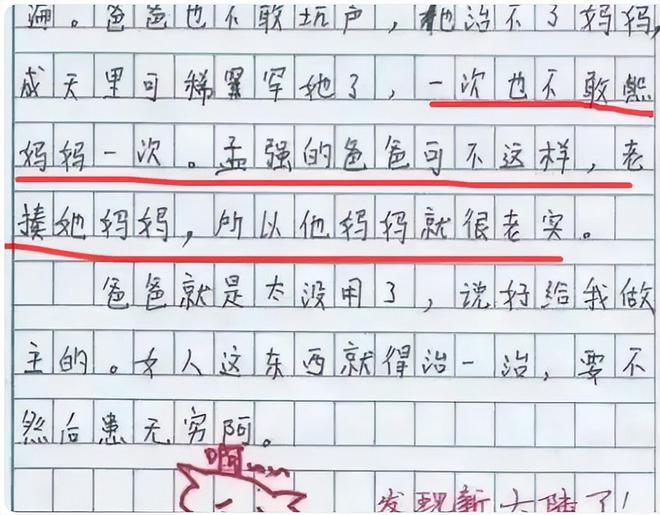 海。爸爸也不敢坑声，他治不了妈妈，
成天里可稀罕她了，一次也不敢熊
妈妈一次。孟强的爸爸可不这样，老
揍她妈妈，所以他妈妈就很老实。
爸爸就是太没用了，说好给我做
主的。女人这东西就得治一治，要不
然后患无穷阿。
发现新大陆了！